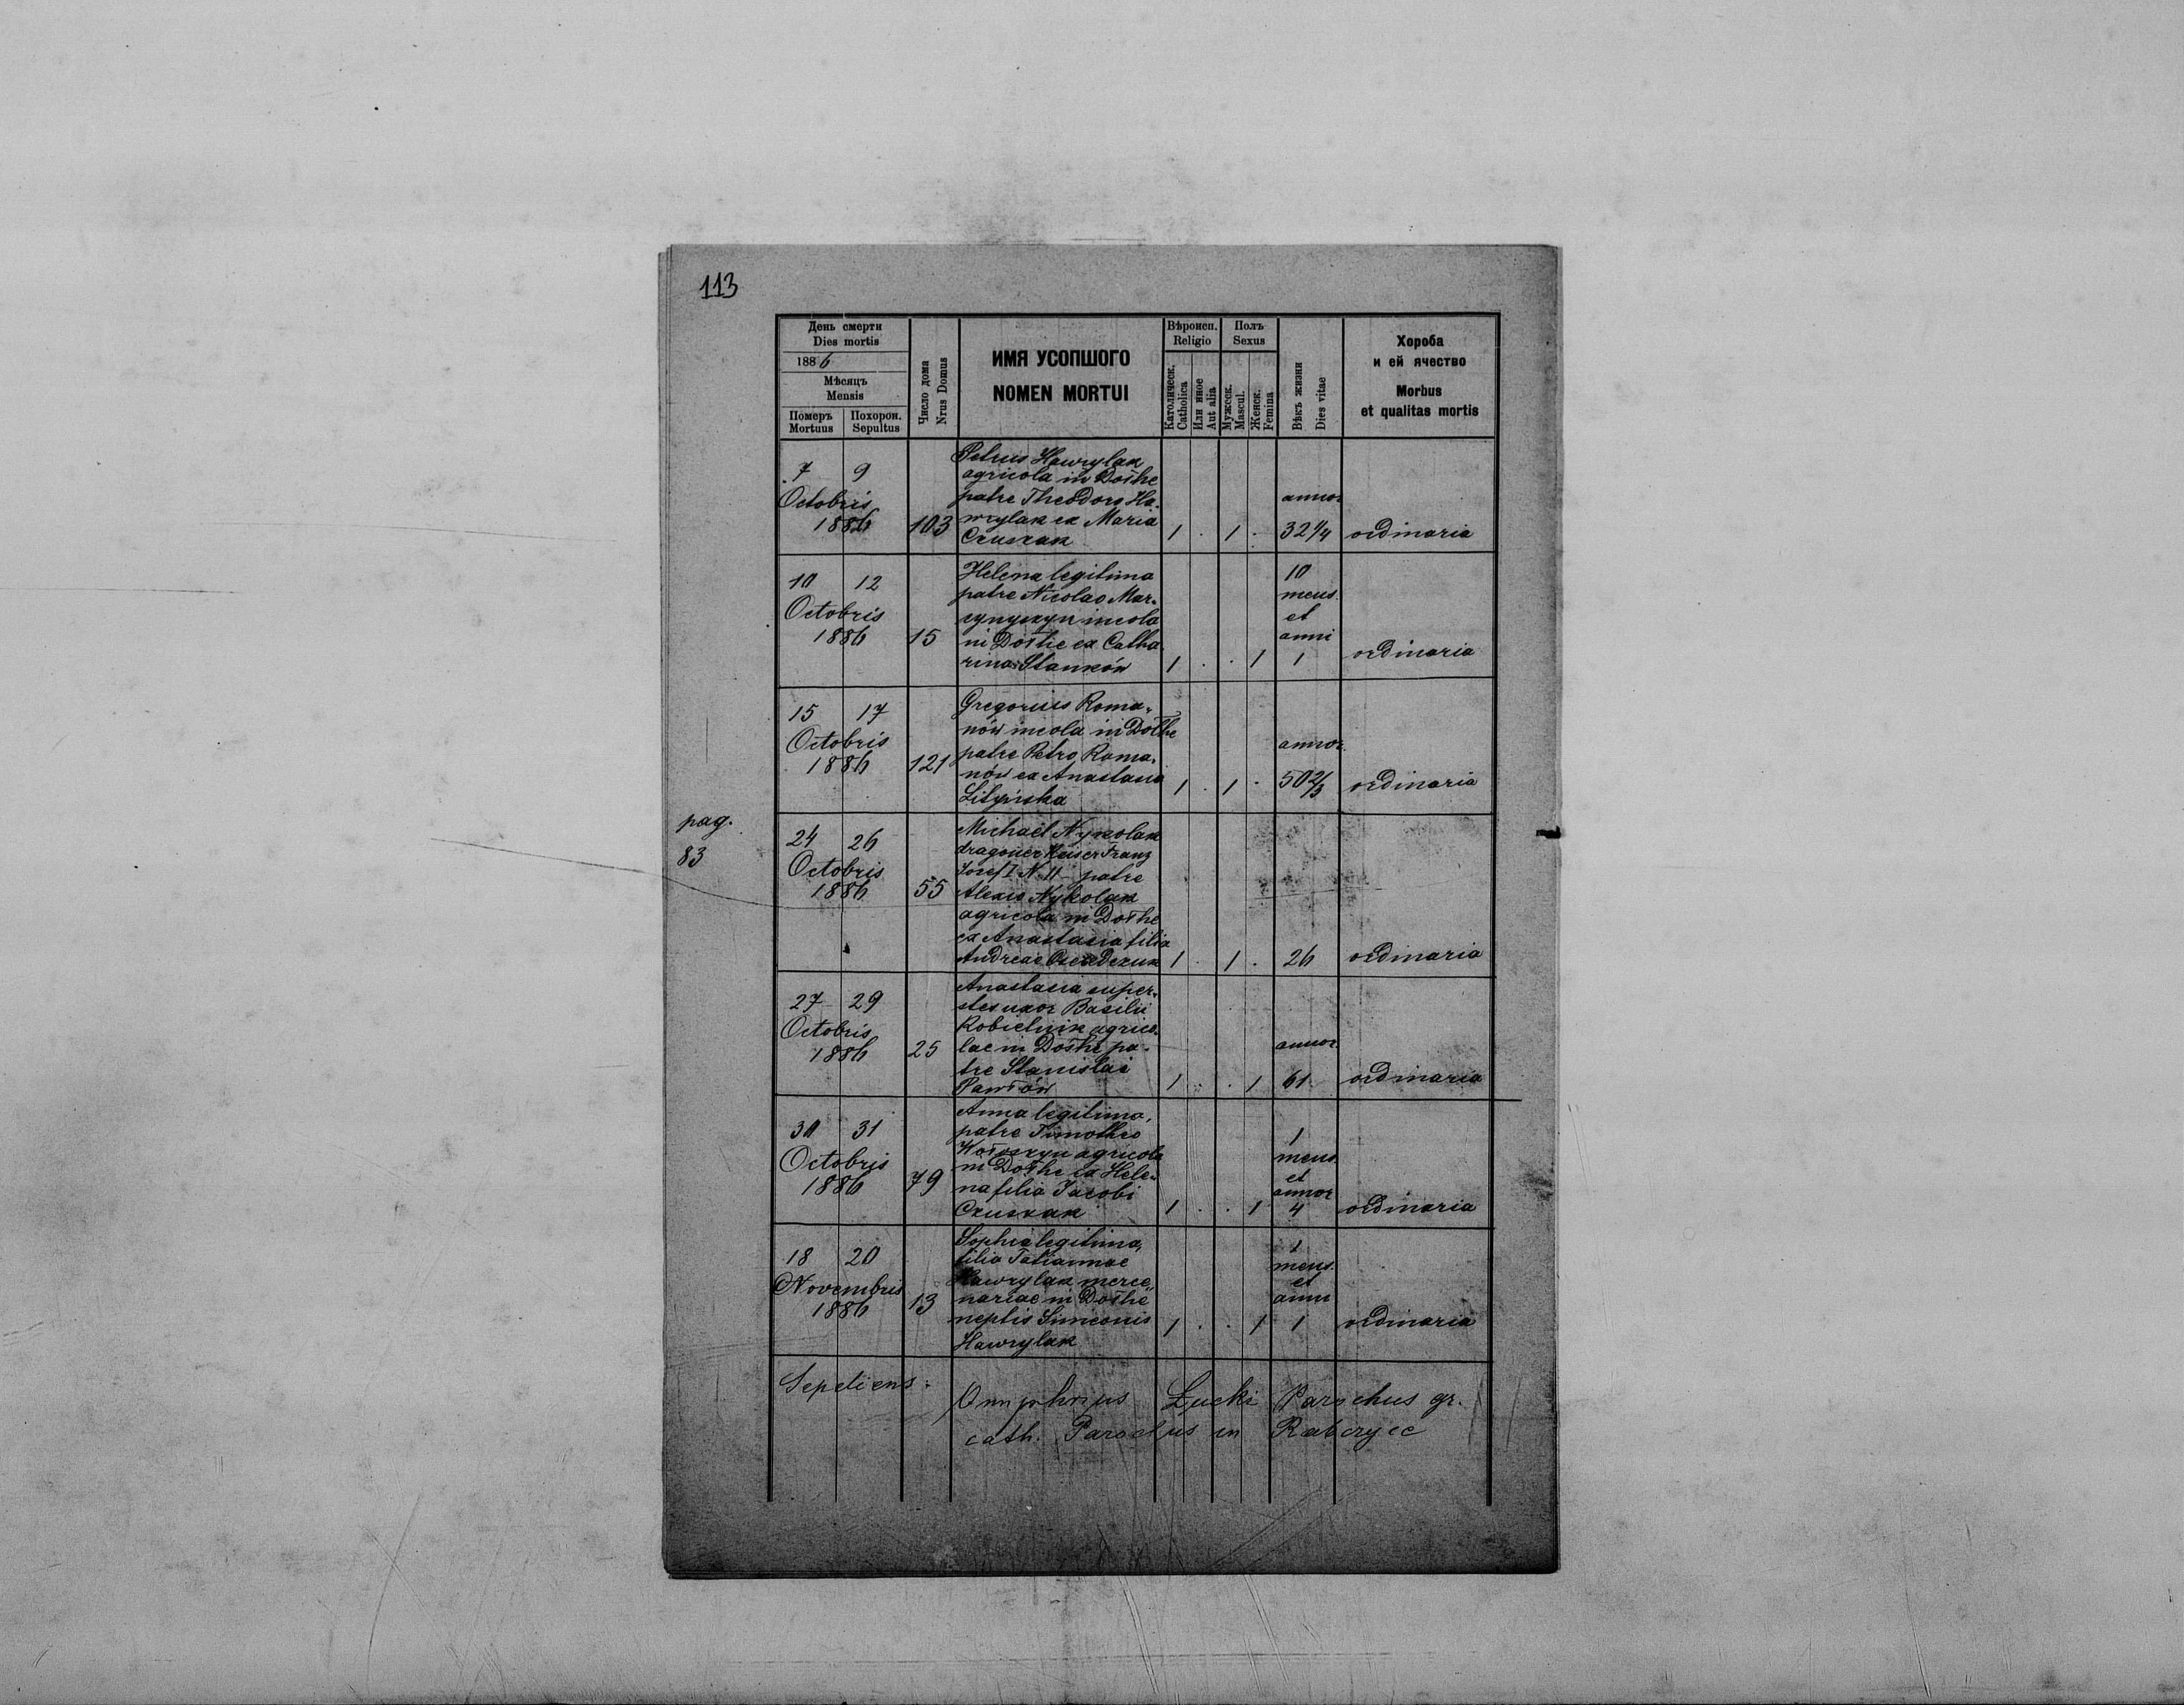 113
День смерти
Dies mortis
1886
Мѣсяць
Mensis
Померъ Похорон.
Mortuus Sepultus
Число дома
Nrus Domus
ИМЯ УСОПШОГО
NOMEN MORTUI
Вѣроисп.
Religio
Католическ.
Catholica
Или иное
Aut alia
Полъ
Sexus
Мужеск.
Mascul.
Женск.
Femina
Вѣкъ жизни
Dies vitae
Хороба
и ей ячество
Morbus
et qualitas mortis
7 9
Octobris
1886
103
Petrus Hawrylak
agricola in Dołhe
patre Theodoro Ha-
wrylak ex Maria
Czuszak
1 . 1 .
annor
32 1/4
ordinaria
10 12
Octobris
1886
15
Helena legitima
patre Nicolao Mar-
incola
in Dołhe ex Catha
rina Stanków
1 . . 1
10
mens.
et
anni
1
ordinaria
15 17
Octobris
1886
121
Gregorius Roma-
nów incola in Dołhe
patre Petro Roma-
nów ex Anastasia
1 . 1 .
annor.
50 2/3
ordinaria
pag.
83
24 26
Octobris
1886
55
Michael Nykolak
dragoner Keiser Franz
Josef I N 11 patre
Alexio Nykolak
agricola in Dołhe
ex Anastasia filia
Andreae
1 . 1 .
26
ordinaria
27 29
Octobris
1886
25
Anastasia super-
stes uxor Basilii
Kobielnik agrico-
lae in Dołhe pa-
tre Stanislai
Pawłów
1 . . 1
annor
61
ordinaria
30 31
Octobris
1886
79
Anna legitima,
patre Timotheo
agricola
in Dołhe ex Hele-
na filia Jacobi
Czuszak
1 . . 1
1
mens.
et
annor
4
ordinaria
18 20
Novembris
1886
13
Sophia legitima,
filia Tatiannae
Hawrylak merce-
nariae in Dołhe
neptis Simeonis
Hawrylak
1 . . 1
1
mens.
et
anni
1
ordinaria
Sepeliens:
Onuphrius Łucki Parochus gr.
cath. Parochus in